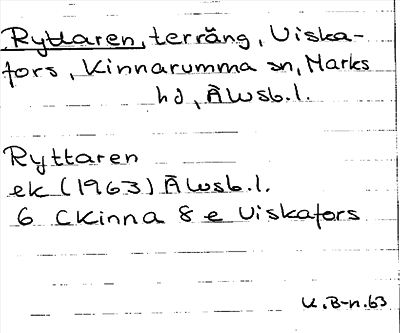 Ryttaren, terräng, Viska-
fors, Kinnarumma sn, Marks
hd, Älvsb.l.
Ryttaren
ek (1963) Älvsb.l.
6 CKinna 8 e Viskafors
K.B-n.63